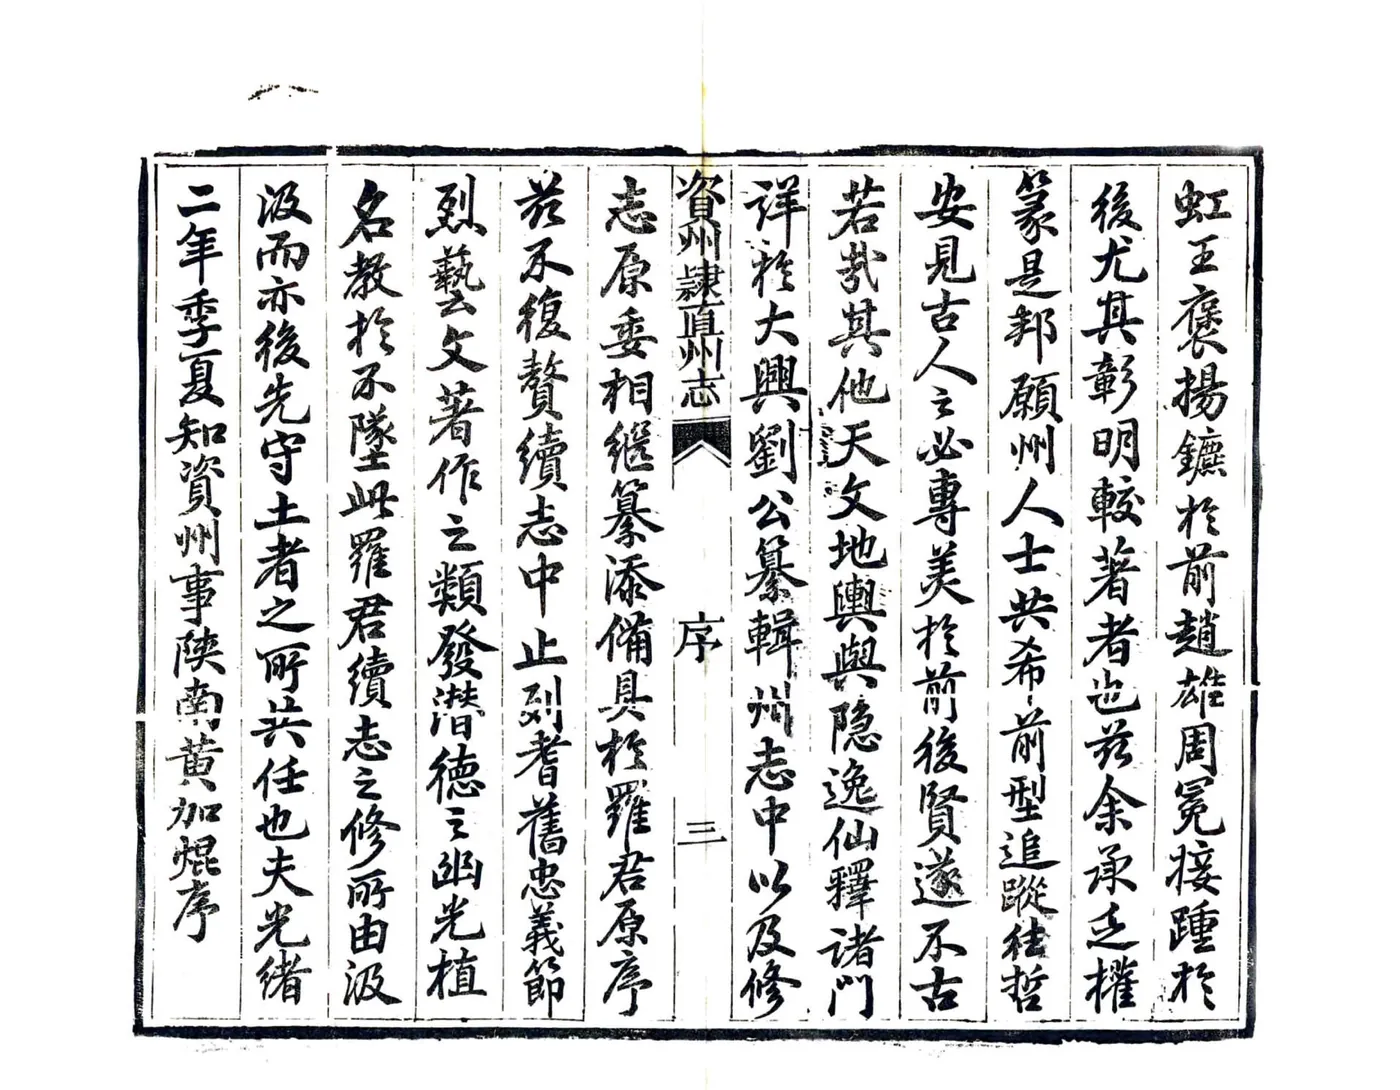 虹王褒揚鑣於前趙雄周冕接踵於
後尤其彰明較著者也茲余承乏權
篆是邦願州人士共希前型追蹤往哲
安見古人之必專美於前後賢遂不古
若哉其他天文地輿與隐逸仙釋諸門
詳於大興劉公纂輯州志中以及修
資州隸直州志
序
三
志原委相繼纂添備具於羅君原序
茲不復贅續志中止列耆舊忠義節
烈藝文著作之類發潜德之幽光植
名教於不墜此羅君續志之修所由汲
汲而亦後先守土者之所共任也夫光緒
二年季夏知資州事陝南黄加焜序